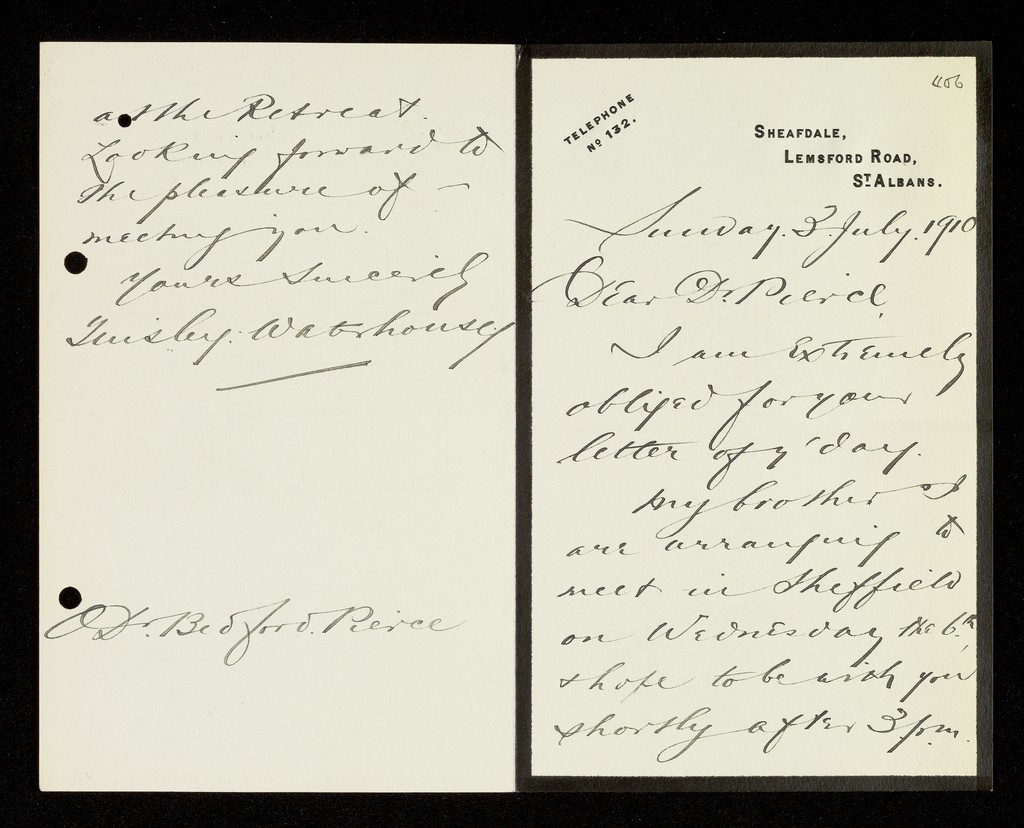 406
TELEPHONE
No 132.
SHEAFDALE,
LEMSFORD ROAD,
ST ALBANS.
Sunday. 3. July. 1910
Dear Dr. Pierce,
I am extremely
obliged for your
letter of y'day.
My brother & I
are arranging to
meet in Sheffield
on Wednesday the 6th,
& hope to be with you
shortly after 3 p.m.
at the Retreat.
Looking forward to
the pleasure of —
meeting you.
Yours sincerely
Tinsley. Waterhouse.
Dr. Bedford. Pierce